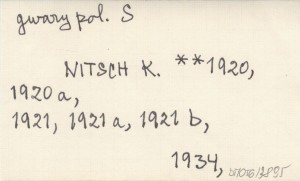 gwary pol. S
NITSCH K. **1920,
1920 a,
1921, 1921 a, 1921 b,
1934,